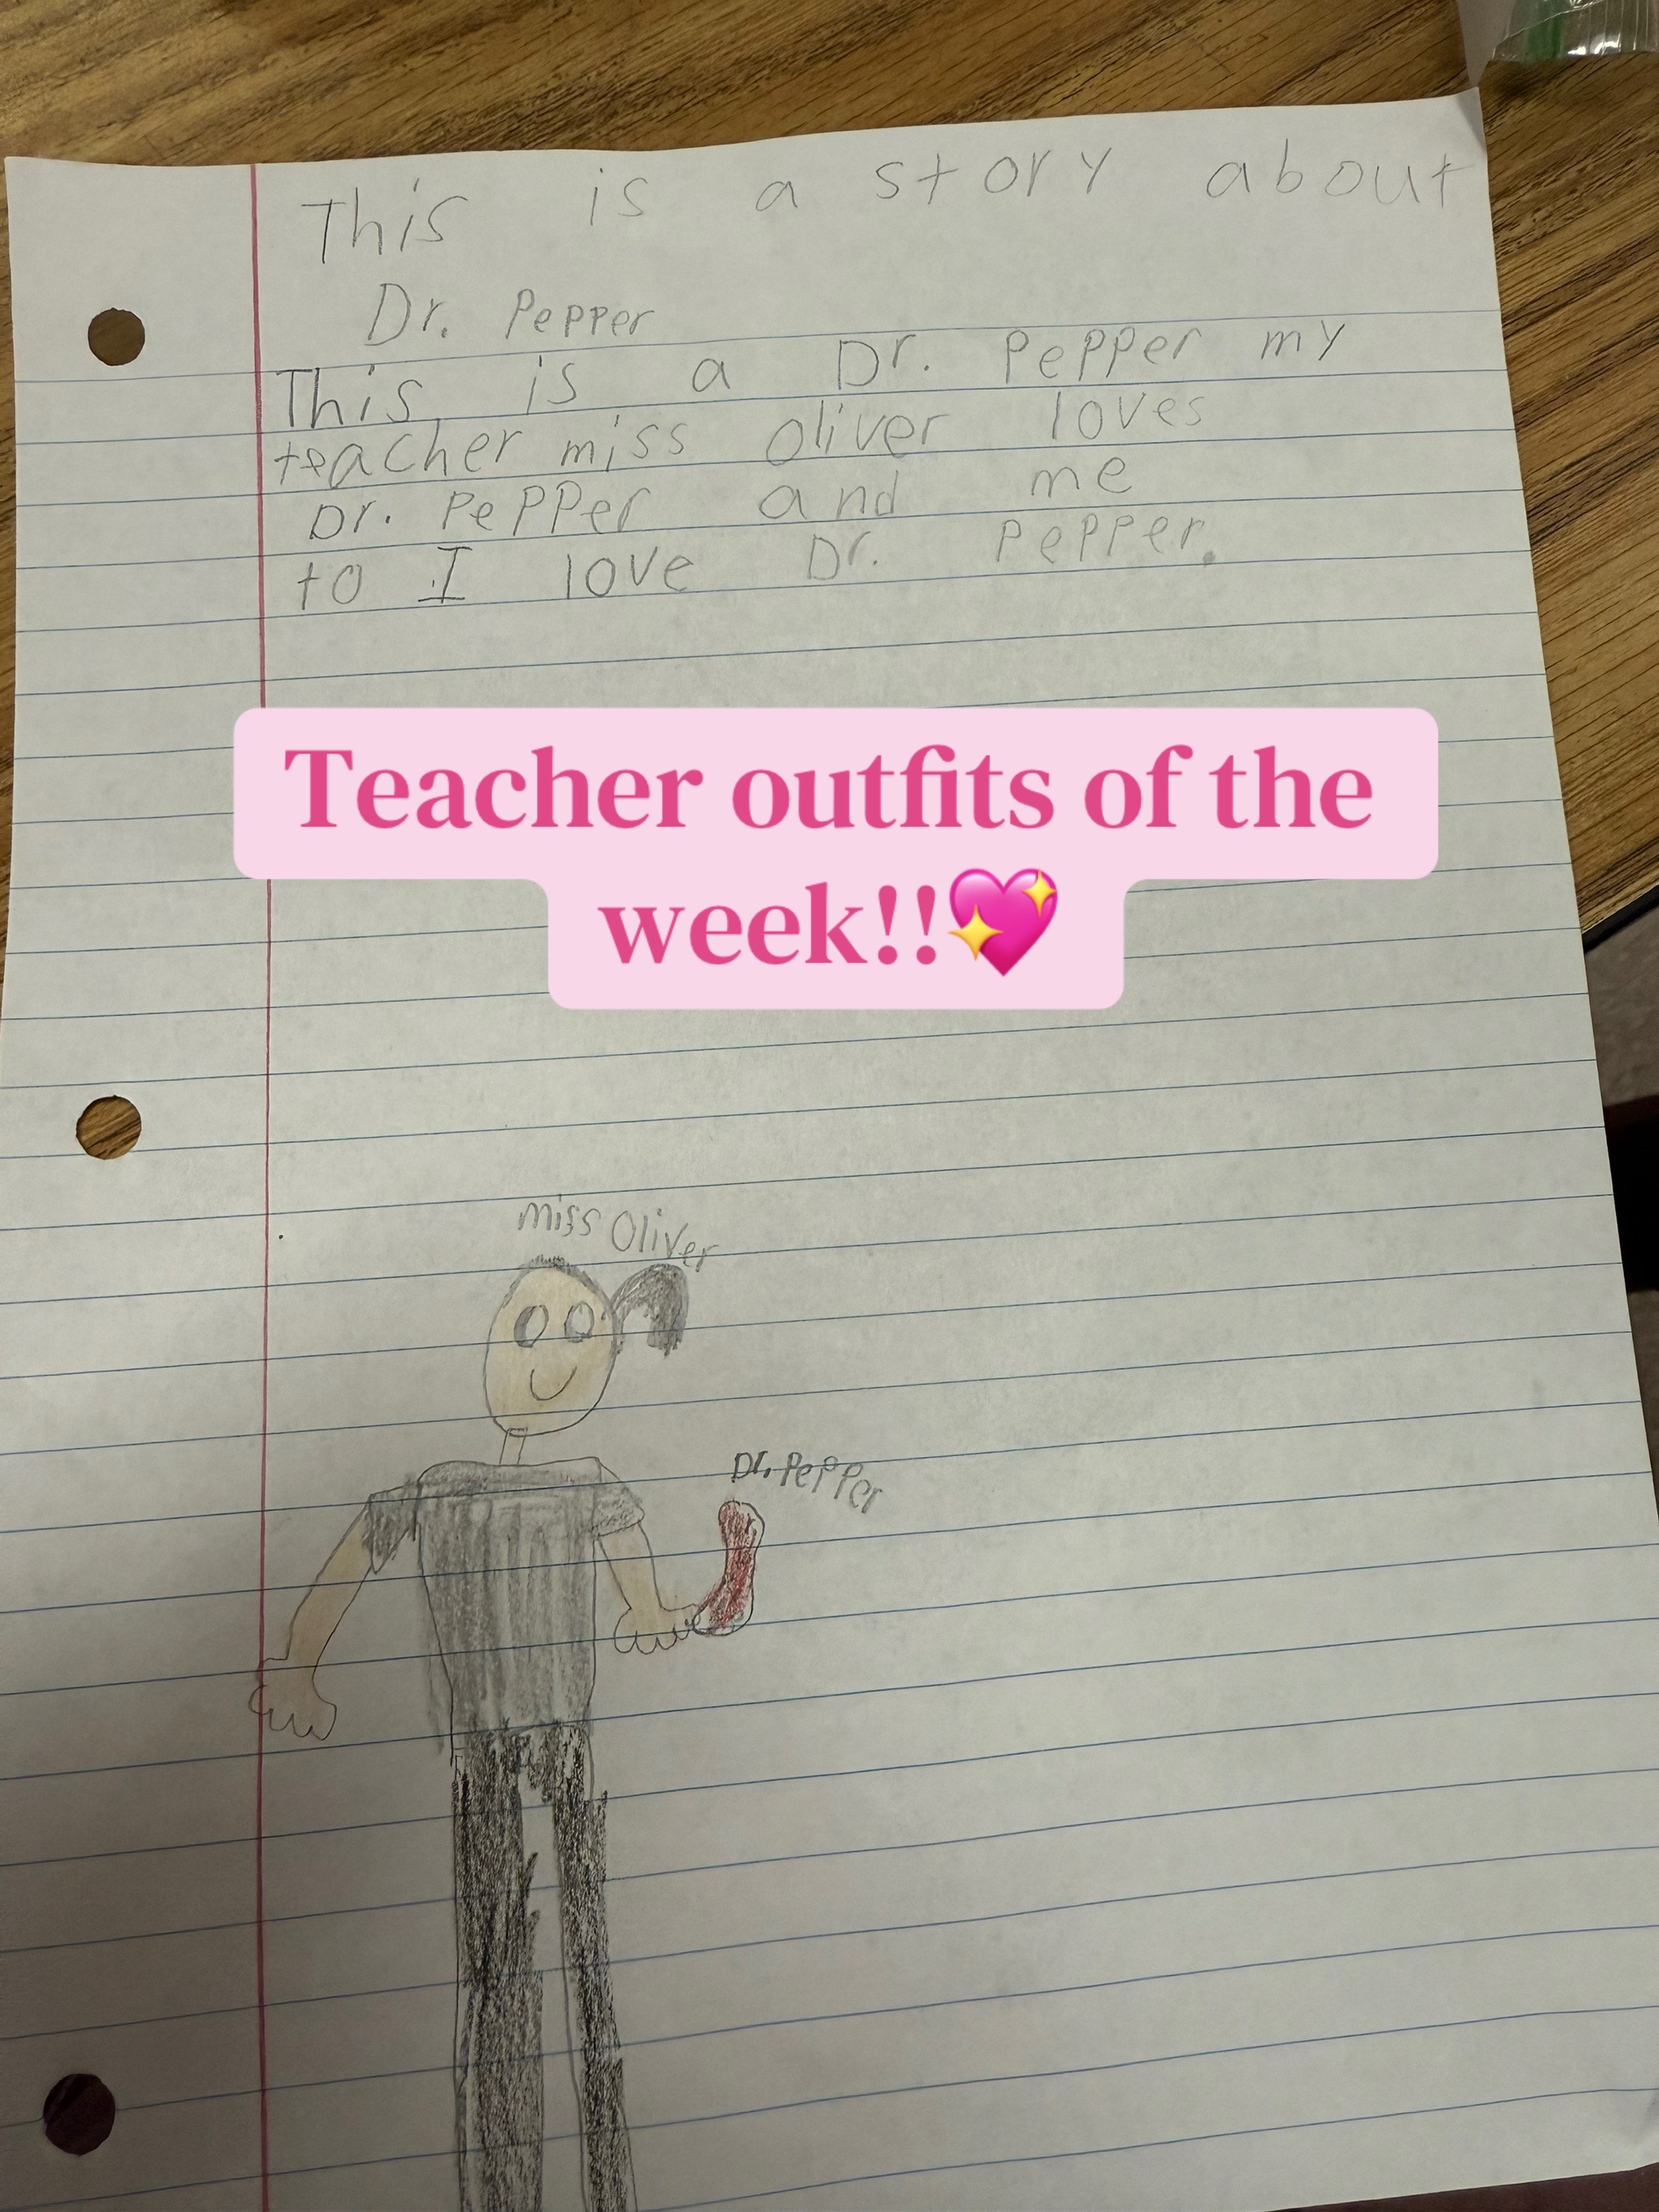 This is a story about
Dr. Pepper
This is a Dr. Pepper my
teacher miss oliver loves
Dr. Pepper and me
to I love Dr. Pepper.
Teacher outfits of the
week!!💖
miss Oliver
Dr. Pepper